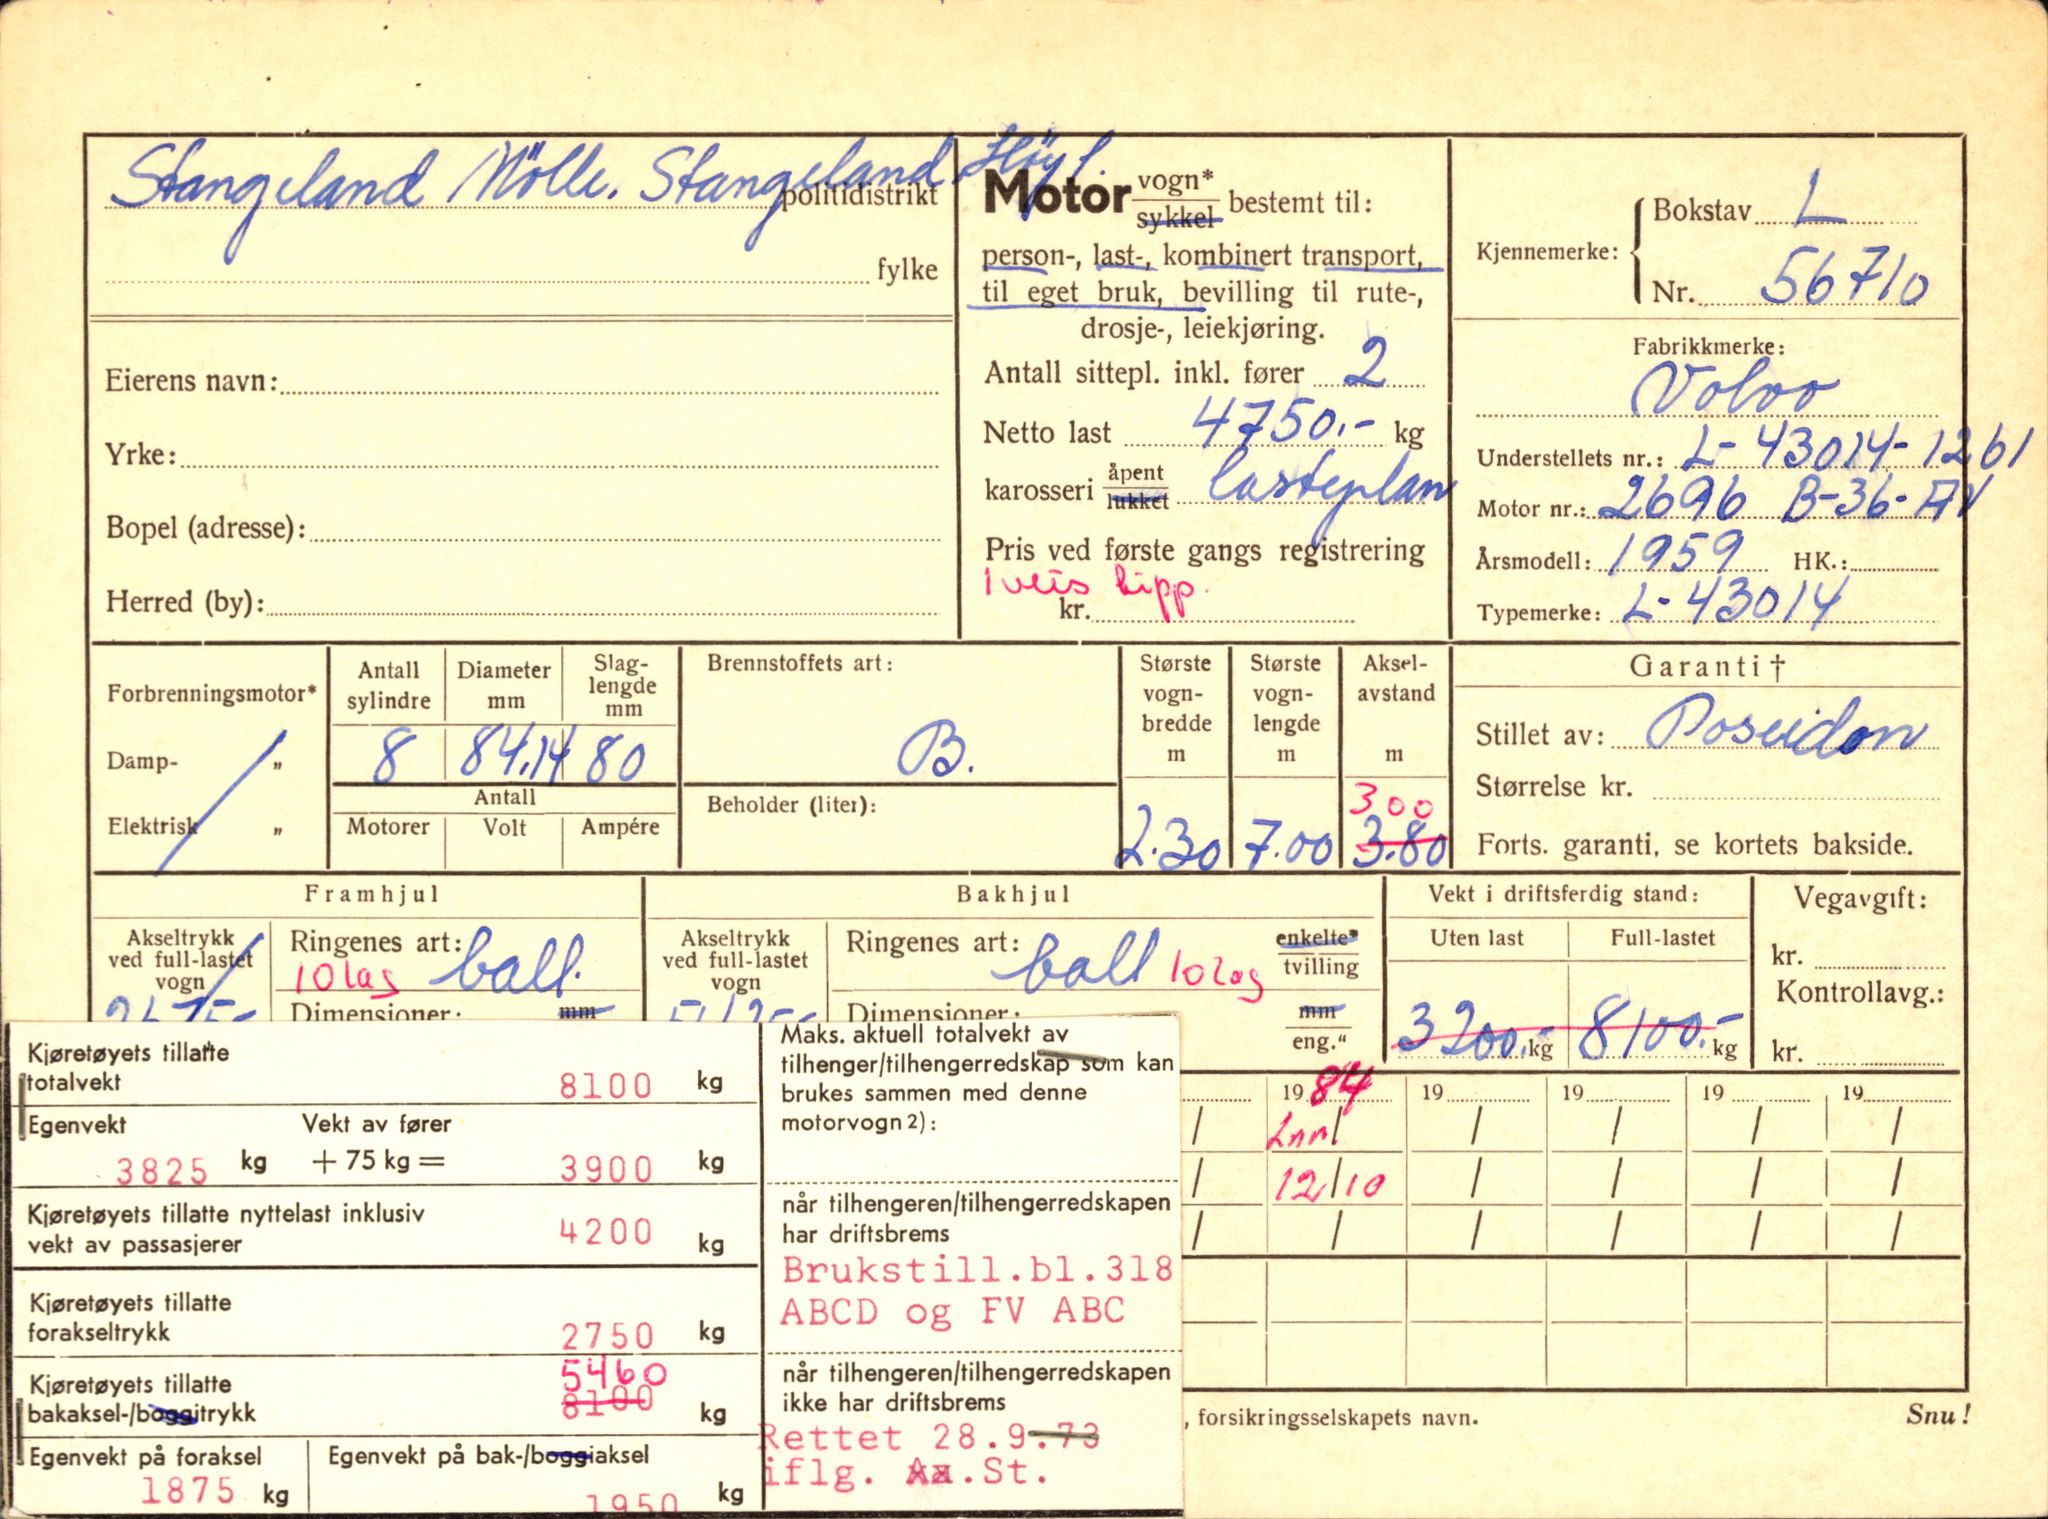 Stangeland Mölle. Stangeland Höyl.
politidistrikt
fylke
Eierens navn:
Yrke:
Bopel (adresse):
Herred (by):
Motor vogn* sykkel bestemt til:
person-, last-, kombinert transport,
til eget bruk, bevilling til rute-,
drosje-, leiekjøring.
Antall sittepl. inkl. fører 2
Netto last 4750.- kg
karosseri åpent lukket lasteplan
Pris ved første gangs registrering
1 veis tipp.
kr.
Kjennemerke: Bokstav L
Nr. 56710
Fabrikkmerke:
Volvo
Understellets nr.: L-43014-1261
Motor nr.: 2696 B-36-AV
Årsmodell: 1959 HK.:
Typemerke: L-43014
Forbrenningsmotor*
Damp- „
Elektrisk „
Antall sylindre
Diameter mm
Slag-lengde mm
8 84,14 80
Antall
Motorer Volt Ampére
Brennstoffets art:
B.
Beholder (liter):
Største vogn-bredde m
2.30
Største vogn-lengde m
7.00
Aksel-avstand m
300
3.80
Garanti †
Stillet av: Poseidon
Størrelse kr.
Forts. garanti, se kortets bakside.
Framhjul
Akseltrykk ved full-lastet vogn
Ringenes art: ball.
10 lag
Dimensioner: mm
Bakhjul
Akseltrykk ved full-lastet vogn
Ringenes art: ball 10 lag
enkelte* tvilling
Dimensioner: mm
eng."
Vekt i driftsferdig stand:
Uten last Full-lastet
3200.- kg 8100.- kg
Vegavgift:
kr.
Kontrollavg.:
kr.
19 84 19 19 19 19
Lnr / / / / /
12/10 / / / /
/ / / / / /
, forsikringsselskapets navn.
Snu!
Kjøretøyets tillatte
totalvekt 8100 kg
Egenvekt Vekt av fører
3825 kg + 75 kg = 3900 kg
Kjøretøyets tillatte nyttelast inklusiv
vekt av passasjerer 4200 kg
Kjøretøyets tillatte
forakseltrykk 2750 kg
5460
Kjøretøyets tillatte
bakaksel-/boggitrykk 8100 kg
Egenvekt på foraksel Egenvekt på bak-/boggiaksel
1875 kg 1950 kg
Maks. aktuell totalvekt av
tilhenger/tilhengerredskap som kan
brukes sammen med denne
motorvogn 2):
når tilhengeren/tilhengerredskapen
har driftsbrems
Brukstill.bl.318
ABCD og FV ABC
når tilhengeren/tilhengerredskapen
ikke har driftsbrems
Rettet 28.9.73
iflg. .St.